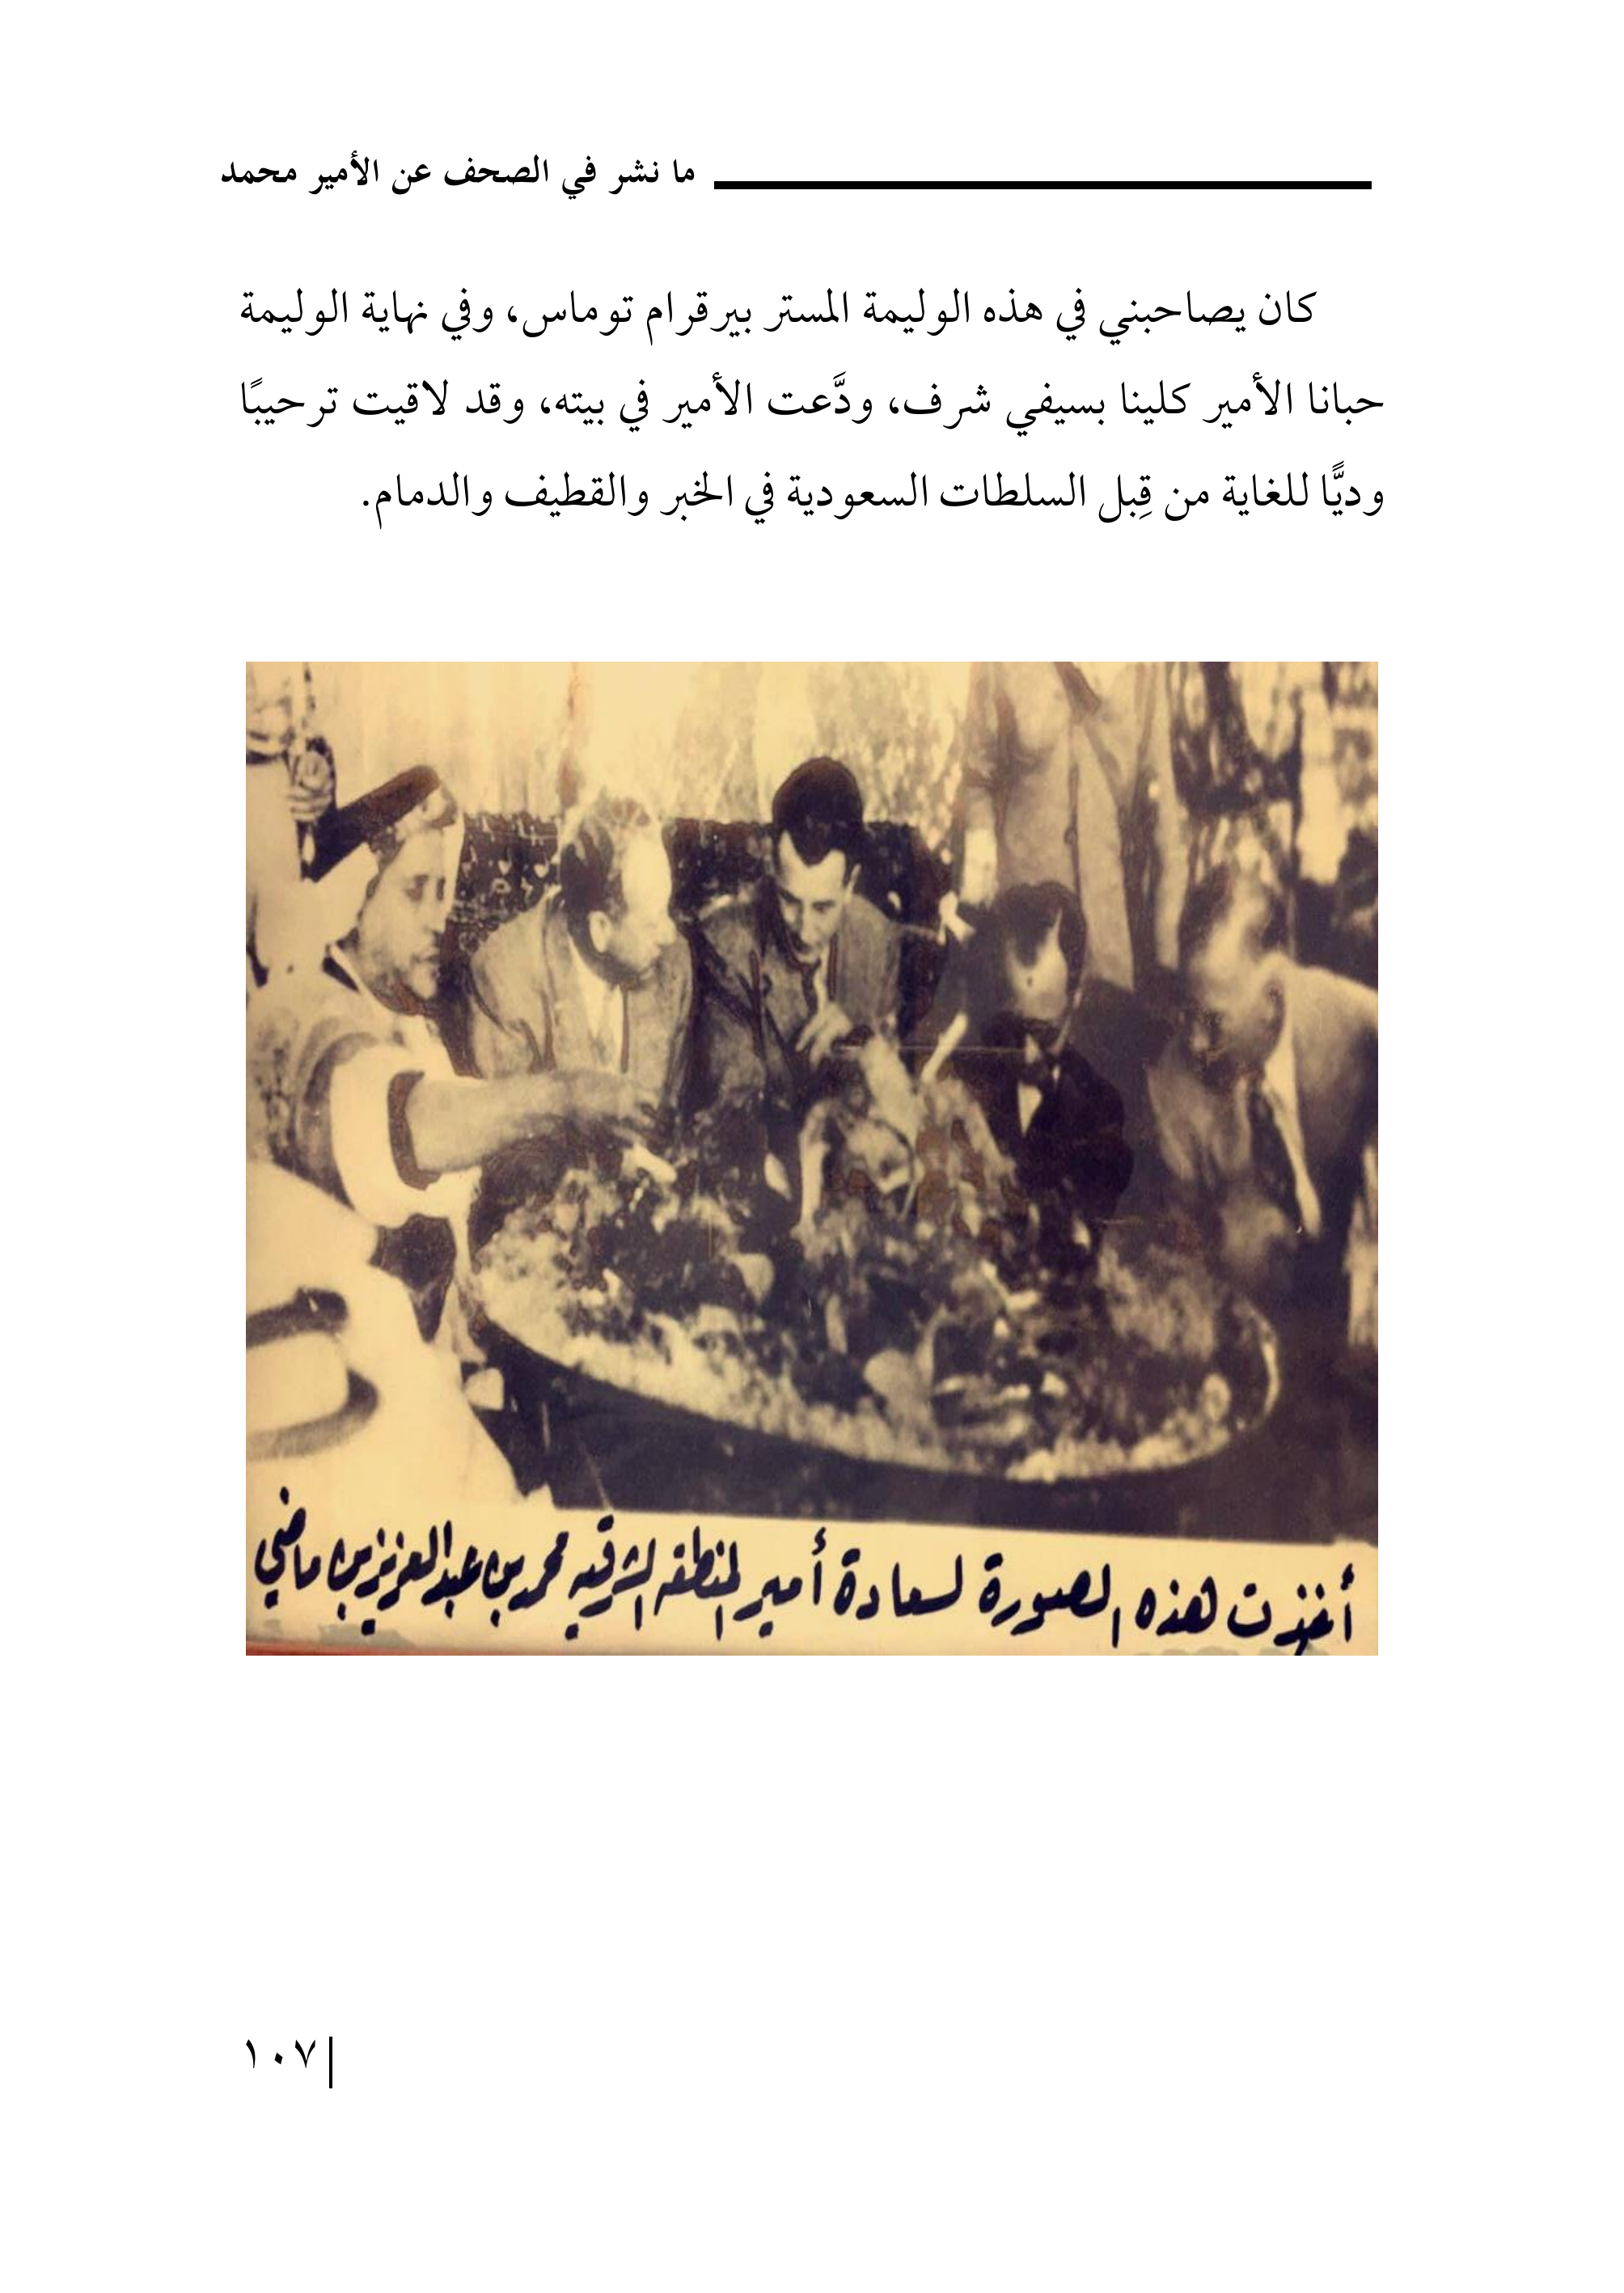 ما نشر في الصحف عن الأمير محمد
كان يصاحبني في هذه الوليمة المستر بيرقرام توماس، وفي نهاية الوليمة
حبانا الأمير كلينا بسيفي شرف، ودَّعت الأمير في بيته، وقد لاقيت ترحيبًا
وديًّا للغاية من قِبل السلطات السعودية في الخبر والقطيف والدمام.
أخذت هذه الصورة لسعادة أمير المنطقه الشرقيه محمد بن عبدالعزيز بن ماضي
١٠٧